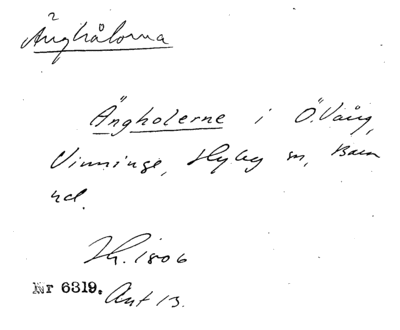 Änghålorna
Ängholerne i Ö. Vång,
Vinninge, Hyby sn, Bara
hd.
Kh. 1806
Nr 6319. Akt 13.